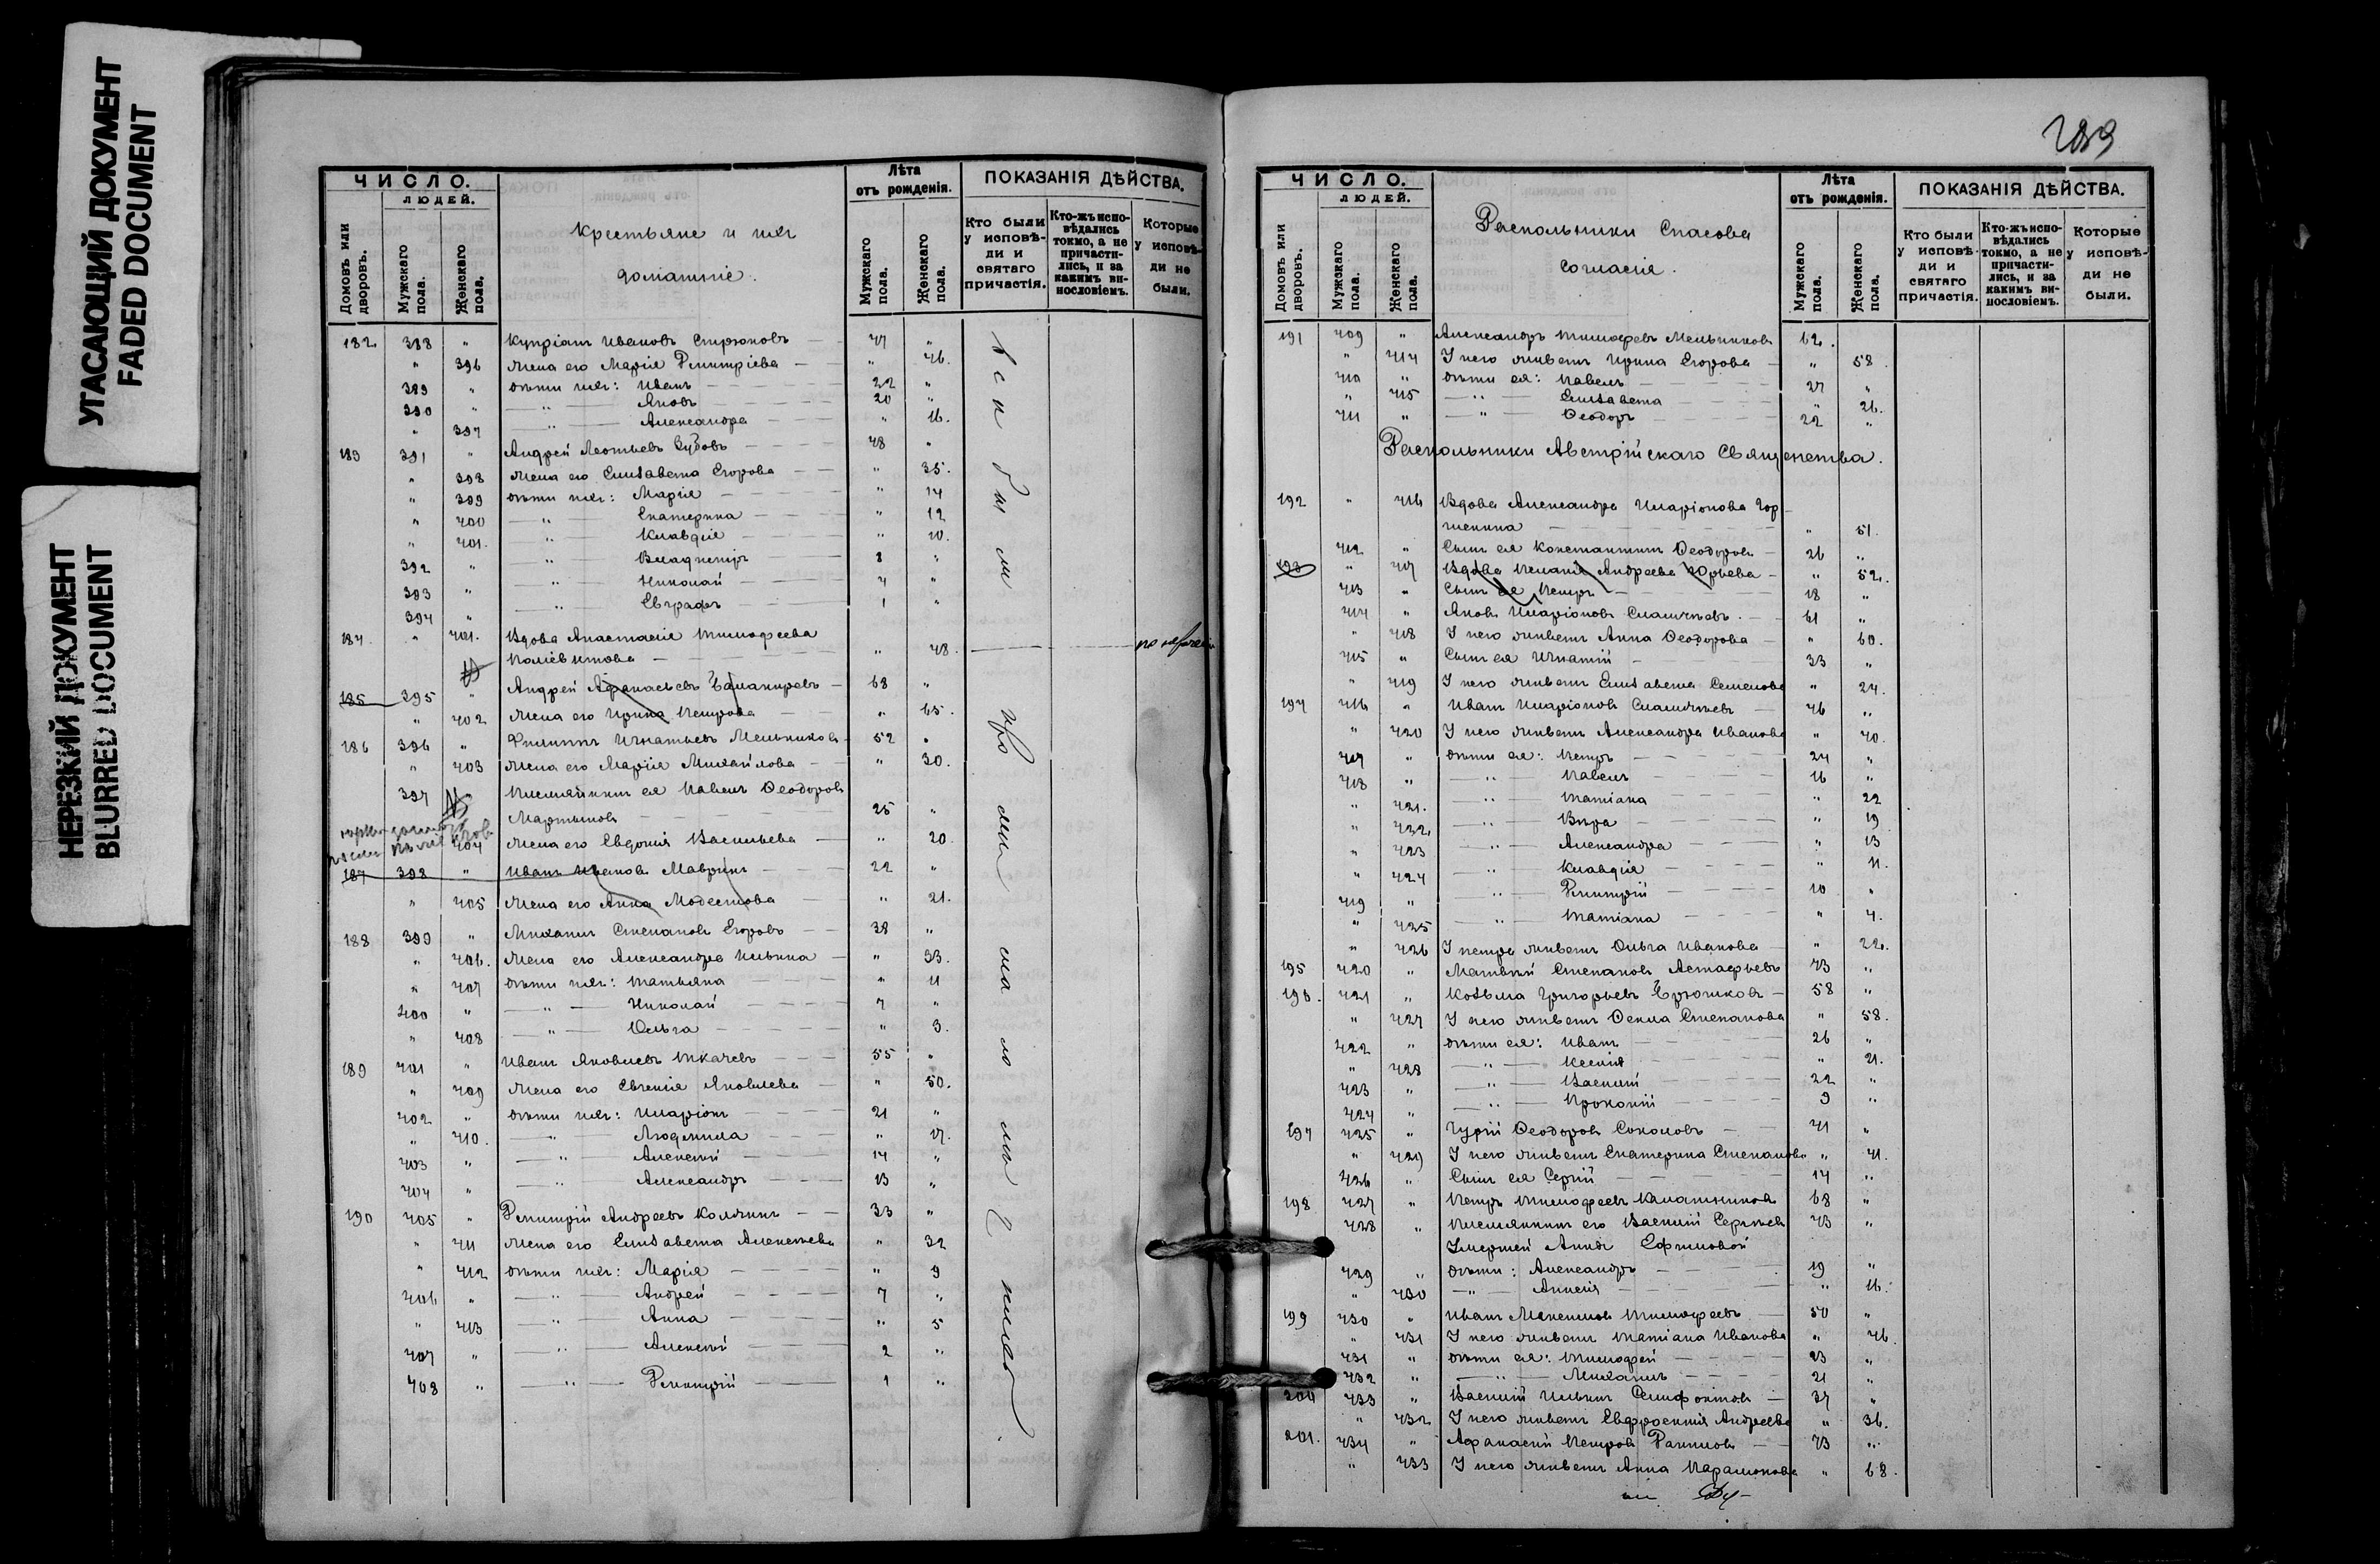 УГАСАЮЩИЙ ДОКУМЕНТ
FADED DOCUMENT
НЕРЕЗКИЙ ДОКУМЕНТ
BLURRED DOCUMENT
ЧИСЛО.
ЛЮДЕЙ.
Домовъ или дворовъ.
Мужскаго пола.
Женскаго пола.
Крестьяне и ихъ
домашніе.
Лѣта
отъ рожденія.
Мужскаго пола.
Женскаго пола.
ПОКАЗАНІЯ ДѢЙСТВА.
Кто были у исповѣ-ди и святаго причастія.
Кто-жъ испо-вѣдались токмо, а не причасти-лись, и за какимъ ви-нословіемъ.
Которые у исповѣ-ди не были.
182 388 " Купріанъ Ивановъ Стрюковъ 47 "
" 396 Жена его Марія Димитріева " 46.
389 " Дѣти ихъ: Иванъ 22 "
390 " " Яковъ 20 "
" 397 " Александра " 16.
183 391 " Андрей Леонтьевъ Зубовъ 48 "
" 398 Жена его Елисавета Егорова " 35.
" 399 Дѣти ихъ: Марія " 14
" 400 " Екатерина " 12
" 401. " Клавдія " 10.
392 " " Владиміръ 8 "
393 " " Николай 4 "
394 " " Евграфъ 1 "
184 " 401. Вдова Анастасія Тимофеева
" 48.
185 395 " Андрей Афанасьевъ 68 "
" 402 Жена его Ирина Петрова " 65.
186 396 " Филиппъ Игнатьевъ Мельниковъ 52 "
" 403 Жена его Марія Михайлова " 30.
397 " Племянникъ ея Павелъ Ѳеодоровъ
Мартыновъ 25 "
404 Жена его Евдокія Васильева " 20
187 398 " Иванъ Ивановъ Мавринъ 22 "
" 405 Жена его Анна Модестова " 21.
188 399 " Михаилъ Степановъ Егоровъ 38 "
" 406. Жена его Александра Ильина " 33.
" 407 Дѣти ихъ: Татьяна " 11
400 " " Николай 7 "
" 408 " Ольга " 3.
189 401 " Иванъ Яковлевъ Ткачевъ 55 "
" 409 Жена его Евгенія Яковлева " 50.
402 " Дѣти ихъ: Иларіонъ 21 "
" 410. " Людмила " 17.
403 " " Алексѣй 14 "
404 " " Александръ 13 "
190 405 " Димитрій Андреевъ Колчинъ 33 "
" 411 Жена его Елисавета Алексѣева " 32
" 412 Дѣти ихъ: Марія " 9
406 " " Андрей 7 "
" 413 " Анна " 5
407 " " Алексѣй 2 "
408 " " Димитрій 1 "
ЧИСЛО.
ЛЮДЕЙ.
Домовъ или дворовъ.
Мужскаго пола.
Женскаго пола.
Раскольники Спасова
согласія.
Лѣта
отъ рожденія.
Мужскаго пола.
Женскаго пола.
ПОКАЗАНІЯ ДѢЙСТВА.
Кто были у исповѣ-ди и святаго причастія.
Кто-жъ испо-вѣдались токмо, а не причасти-лись, и за какимъ ви-нословіемъ.
Которые у исповѣ-ди не были.
191 409 " Александръ Тимофеевъ Мельниковъ 62.
" 414 У него живетъ Ирина Егорова " 58.
410 " Дѣти ея: Павелъ 27 "
" 415 " Елисавета " 26.
411 " " Ѳеодоръ 22 "
Раскольники Австрійскаго Священства.
192 " 416 Вдова Александра Иларіонова Гор-
шенина " 51.
412 " Сынъ ея Константинъ Ѳеодоровъ 26 "
193 " 417 Вдова Меланія Андреева Юрьева " 52.
413 " Сынъ ея Петръ 18 "
414 " Яковъ Иларіоновъ 61 "
" 418 У него живетъ Анна Ѳеодорова " 60.
415 " Сынъ ея Игнатій 33 "
" 419 У него живетъ Елисавета Семенова " 24.
194 416 " Иванъ Иларіоновъ 46 "
" 420 У него живетъ Александра Иванова " 40.
417 " Дѣти ея: Петръ 24 "
418 " " Павелъ 16 "
" 421. " Татіана " 22
" 422 " Вѣра " 19
" 423 " Александра " 13
" 424 " Клавдія " 11.
419 " " Димитрій 10 "
" 425 " Татіана " 4.
" 426 У Петра живетъ Ольга Иванова " 22.
195 420 " Матвѣй Степановъ Астафьевъ 43 "
196. 421 " Козьма Григорьевъ 58 "
" 427 У него живетъ Ѳекла Степанова " 58.
422 " Дѣти ея: Иванъ 26 "
" 428 " Ксенія " 21.
423 " " Василій 22 "
424 " " Прокопій 9 "
197 425 " Гурій Ѳеодоровъ Соколовъ 41 "
" 429 У него живетъ Екатерина Степанова " 41.
426 " Сынъ ея Сергій 14 "
198 427 " Петръ Тимофеевъ Калашниковъ 68 "
428 " Племянникъ его Василій Сергѣевъ 43 "
Умершей Анны Ефимовой
429 " Дѣти: Александръ 19 "
" 430 " " 16.
199 430 " Иванъ Максимовъ Тимофеевъ 50 "
" 431 У него живетъ Татіана Иванова " 46.
431 " Дѣти ея: Тимофей 23 "
432 " " Михаилъ 21 "
200 433 " Василій Ильинъ 37 "
" 432 У него живетъ Евфросинія Андреева " 36.
201. 434 " Афанасій Петровъ 73 "
" 433 У него живетъ Анна Парамонова " 68.